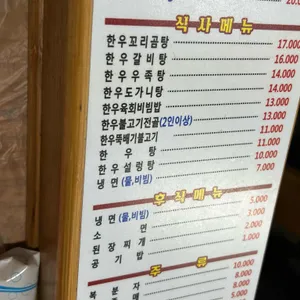 식사메뉴
한우꼬리곰탕 17.000
한우갈비탕 16.000
한우우족탕 14.000
한우도가니탕 14.000
한우육회비빔밥 13.000
한우불고기전골(2인이상) 13.000
한우뚝배기불고기 11.000
한 우 탕 11.000
한우설렁탕 10.000
냉면(물,비빔) 7.000
후식메뉴
냉면(물,비빔) 5.000
소 면 3.000
된장찌개 2.000
공 기 밥 1.000
주 류
복 분 자 10.000
8.000
8.000